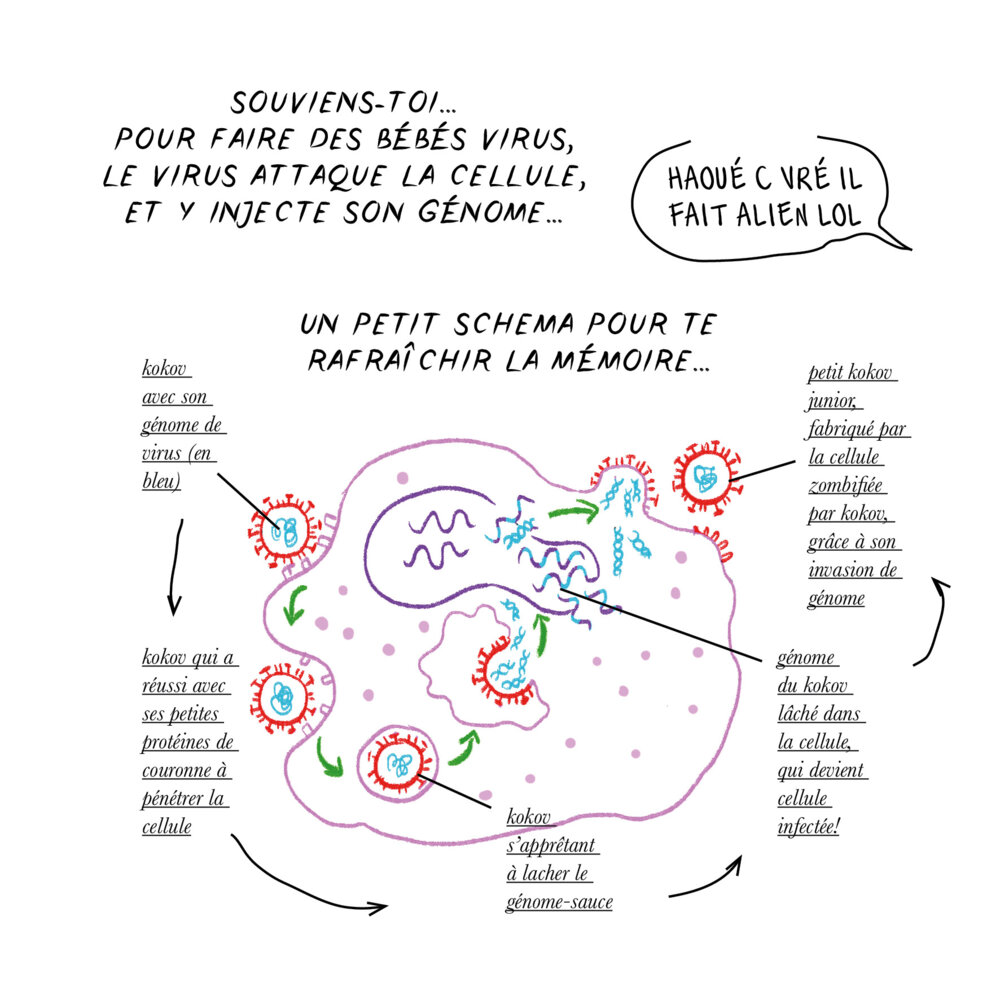 SOUVIENS-TOI...
POUR FAIRE DES BÉBÉS VIRUS,
LE VIRUS ATTAQUE LA CELLULE,
ET Y INJECTE SON GÉNOME...
HAOUÉ C VRÉ IL
FAIT ALIEN LOL
UN PETIT SCHEMA POUR TE
RAFRAÎCHIR LA MÉMOIRE...
kokov
avec son
génome de
virus (en
bleu)
kokov qui a
réussi avec
ses petites
protéines de
couronne à
pénétrer la
cellule
kokov
s'apprêtant
à lacher le
génome-sauce
génome
du kokov
lâché dans
la cellule,
qui devient
cellule
infectée!
petit kokov
junior,
fabriqué par
la cellule
zombifiée
par kokov,
grâce à son
invasion de
génome